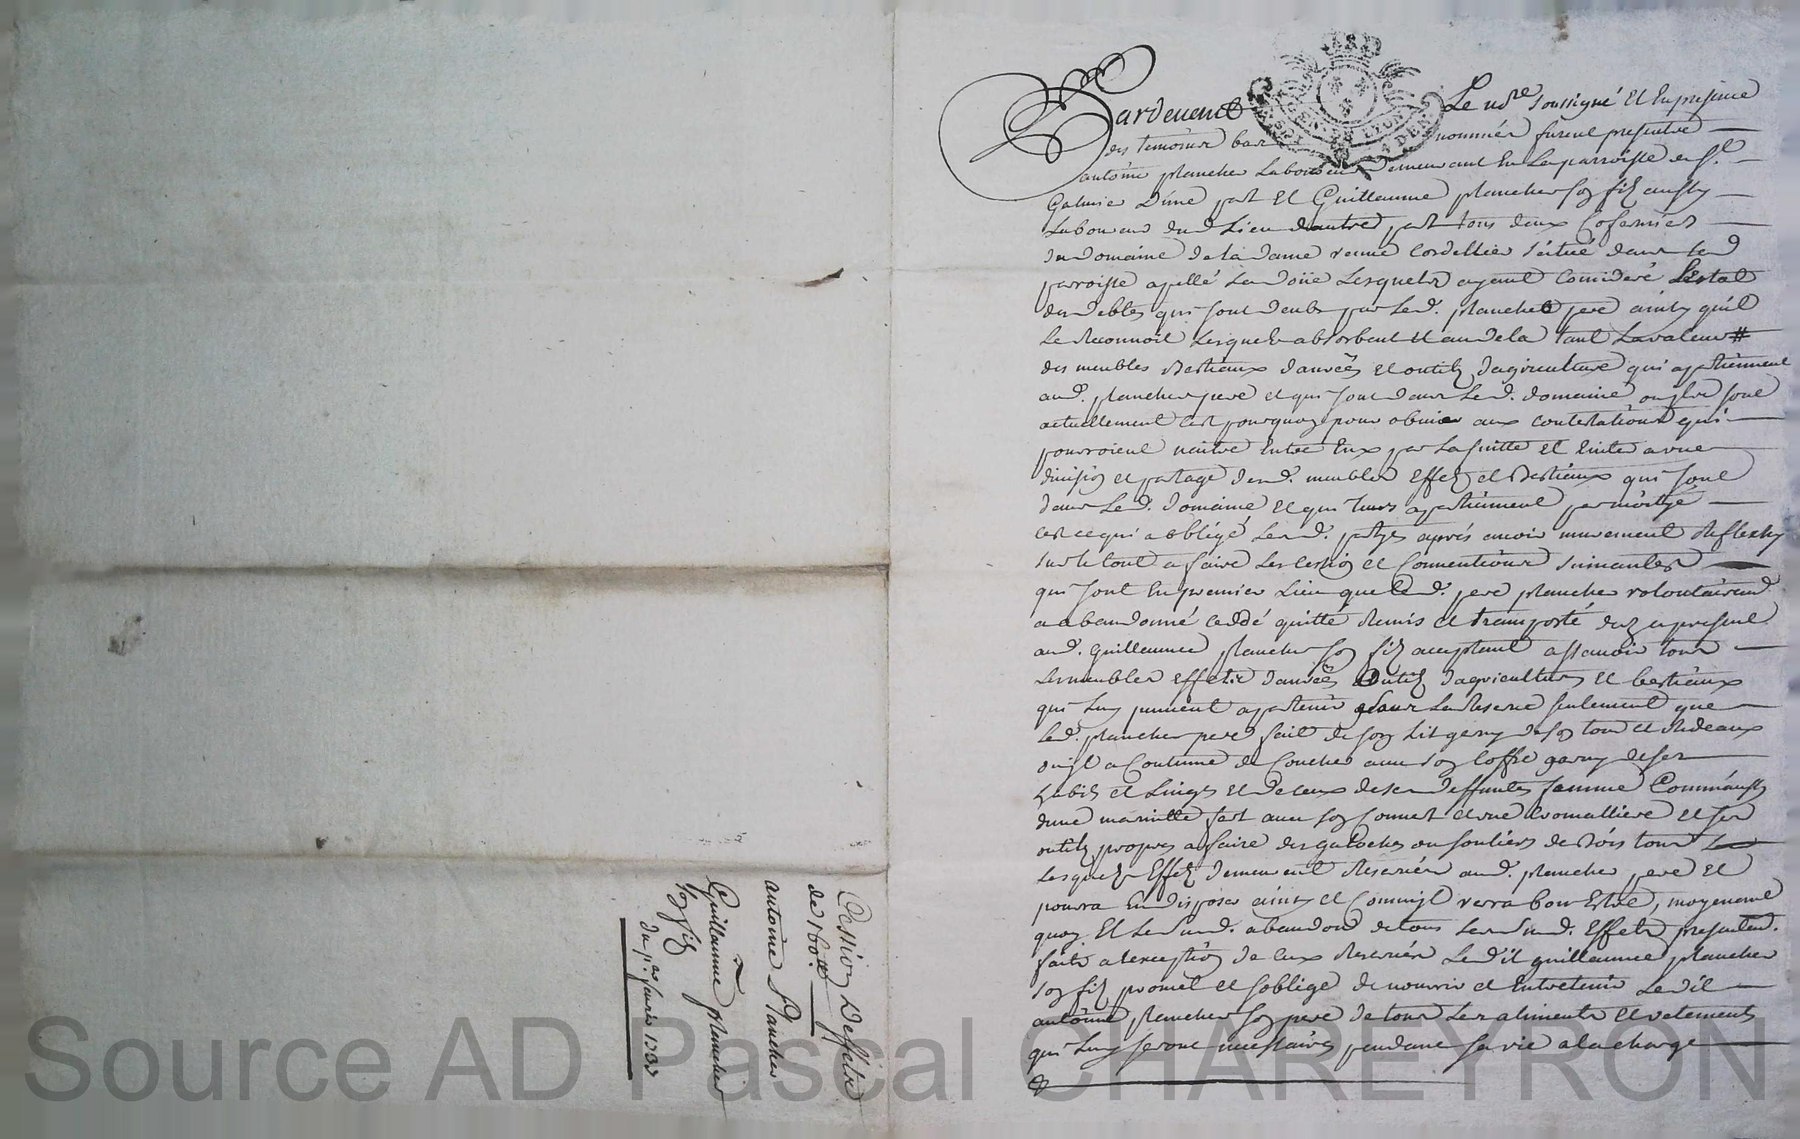 Pardevent Le no.re soussigné Et En presence
des temoins bas nommés furent presents
antoine plancher Laboureur demeurant En La parroisse de St
Galmier d'une part Et Guillaume plancher son fils aussy
Laboureur dud. Lieu dautre part tous deux Cofermiers
du domaine de la dame veuve Cordellier situé dans lad.
parroisse apellé La doüe Lesquels ayant Consideré L'estat
des debtes qui sont deubs par Led. plancher pere ainsy qu'il
Le Reconnoit Lesquels absorbent et audela tant La valeur #
des meubles Bestiaux danrées Et outils d'agriculture qui apartiennent
aud. plancher pere et qui sont dans Led. domaine ou ils sont
actuellement C'est pourquoy pour obvier aux contestations qui
pourroient naitre Entre Eux par La suitte Et Eviter a une
division et partage desd. meubles Effets et Bestiaux qui sont
dans Led. domaine Et qui Leurs apartiennent par moitye
c'est ce qui a obligé Lesd. partyes aprés avoir meurement Reflechy
sur le tout a faire Les Cession et Conventions suivantes
qui sont En premier Lieu que Led. pere plancher volontairem.t
a abandonné ceddé quitté Remis et transporté dez apresent
aud. Guillaume plancher son fils acceptant assavoir tous
Les meubles Effets danrées Outils d'agriculture Et bestiaux
qui Luy peuvent apartenir sauf La Reserve seulement que
Led. plancher pere fait de son Lit garny de son tour et Rideaux
ou il a Coutume de Coucher avec son Coffre garny de ses
habits et Linges Et de Ceux de sa deffunte femme Comme aussy
d'une marmitte fert avec son Couvert et une Cromalliere et ses
outils propres a faire des galoches ou souliers de Bois tous
Lesquels Effets demeurent Reservés aud. plancher pere Et
pourra En disposer ainsy et Comme il verra bon Estre, moyenant
quoy Et Le susd. abandon de tous Les susd. Effets presentem.t
faits a lexception de Ceux Reservés Ledit guillaume plancher
son fils promet et s'oblige de nourrir et Entretenir Ledit
antoine plancher son pere de tous Les aliments et vetements
qui Luy seront necessaires pendant sa vie a la charge
Cession d'effets
de 160 tt
antoine Plancher
a
Guillaume plancher
son fils
du p.er janvier
Source AD Pascal CHAREYRON